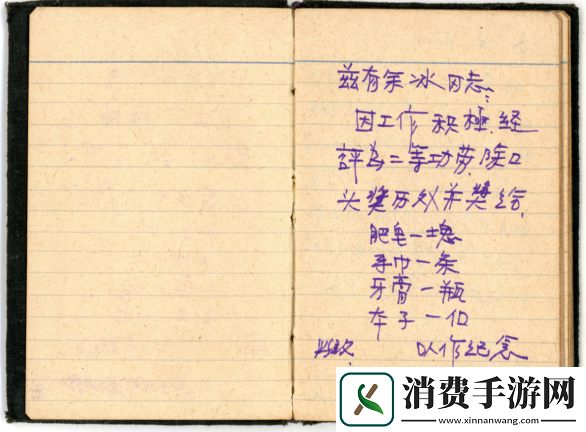 兹有余冰同志：
因工作积極，経
評為二等功劳，除口
头奨历外并奬给，
肥皂一塊
手巾一条
牙膏一瓶
本子一个
此致 以作纪念
消费手游网
www.xinnanwang.com